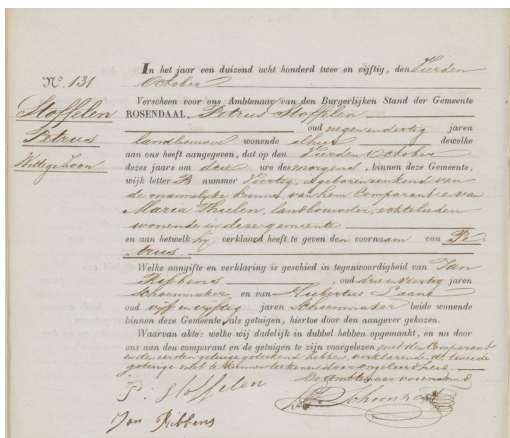 In het jaar een duizend acht honderd twee en vijftig, den Vierden
No. 131
October
Verscheen voor ons Ambtenaar van den Burgerlijken Stand der Gemeente
Stoffelen
Petrus
Wettige Zoon
ROSENDAAL, Petrus Stoffelen
oud negenendertig jaren
landbouwer wonende alhier dewelke
aan ons heeft aangegeven, dat op den Vierden October
dezes jaars om drie ure des morgens, binnen deze Gemeente,
wijk letter B nummer Veertig, is geboren een kind van
de mannelijke kunne, van hem Comparant en van
Maria Thielen, landbouwster, echtelieden
wonende in deze gemeente
en aan hetwelk hij verklaard heeft te geven den voornaam van Pe
trus.
Welke aangifte en verklaring is geschied in tegenwoordigheid van Jan
Ribbens, oud drie en veertig jaren
Schoenmaker en van Hubertus
oud vijf en vijftig jaren Schoenmaker beide wonende
binnen deze Gemeente, als getuigen, hiertoe door den aangever gekozen.
Waarvan akte: welke wij dadelijk in dubbel hebben opgemaakt, en na door
ons aan den comparant en de getuigen te zijn voorgelezen met den Comparant
en den eersten getuige geteekend hebben, verklarende de tweede
getuige niet te kunnen teekenen door ongeleerdheid.
De Ambtenaar voornoemd
P. Stoffelen
Jan Ribbens